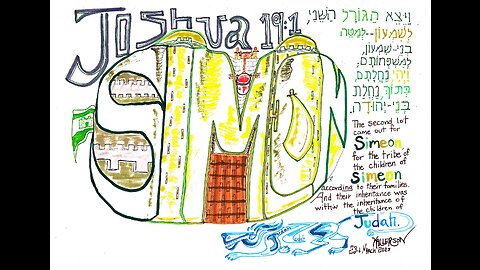 Joshua 19:1
וַיֵּצֵא הַגּוֹרָל הַשֵּׁנִי
לְשִׁמְעוֹן--לְמַטֵּה
בְנֵי-שִׁמְעוֹן,
לְמִשְׁפְּחוֹתָם;
וַיְהִי נַחֲלָתָם,
בְּתוֹךְ נַחֲלַת
בְּנֵי-יְהוּדָה.
SIMEON
The second lot
came out for
Simeon,
for the tribe of
the children of
Simeon
according to their families.
And their inheritance was
within the inheritance of
the children of
Judah.
March 2020